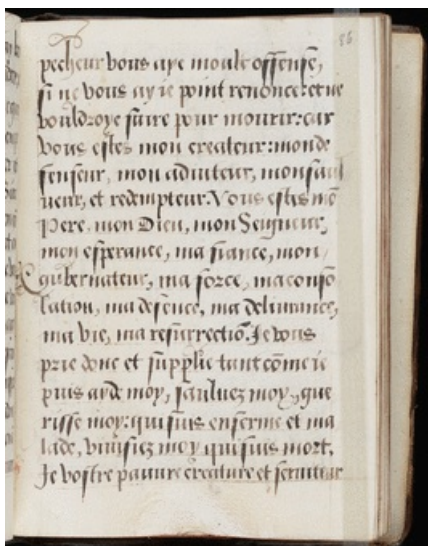 56
pecheur vous aye moult offensé,
si ne vous ay ie point renoncé: et ne
vouldroye faire pour mourir: car
vous estes mon createur: mon de
fenseur, mon adiuteur, mon saul
ueur, et redempteur. Vous estes mō
Pere, mon Dieu, mon Seigneur,
mon esperance, ma fiance, mon
gubernateur, ma force, ma conso
lation, ma defence, ma deliurance,
ma vie, ma resurrectiō. Je vous
prie donc et supplie tant cōme ie
puis ayde moy, saulvez moy, gue
risse moy: qui suis enferme et ma
lade, viuifiez moy qui suis mort.
Je vostre pauure creature et seruiteur